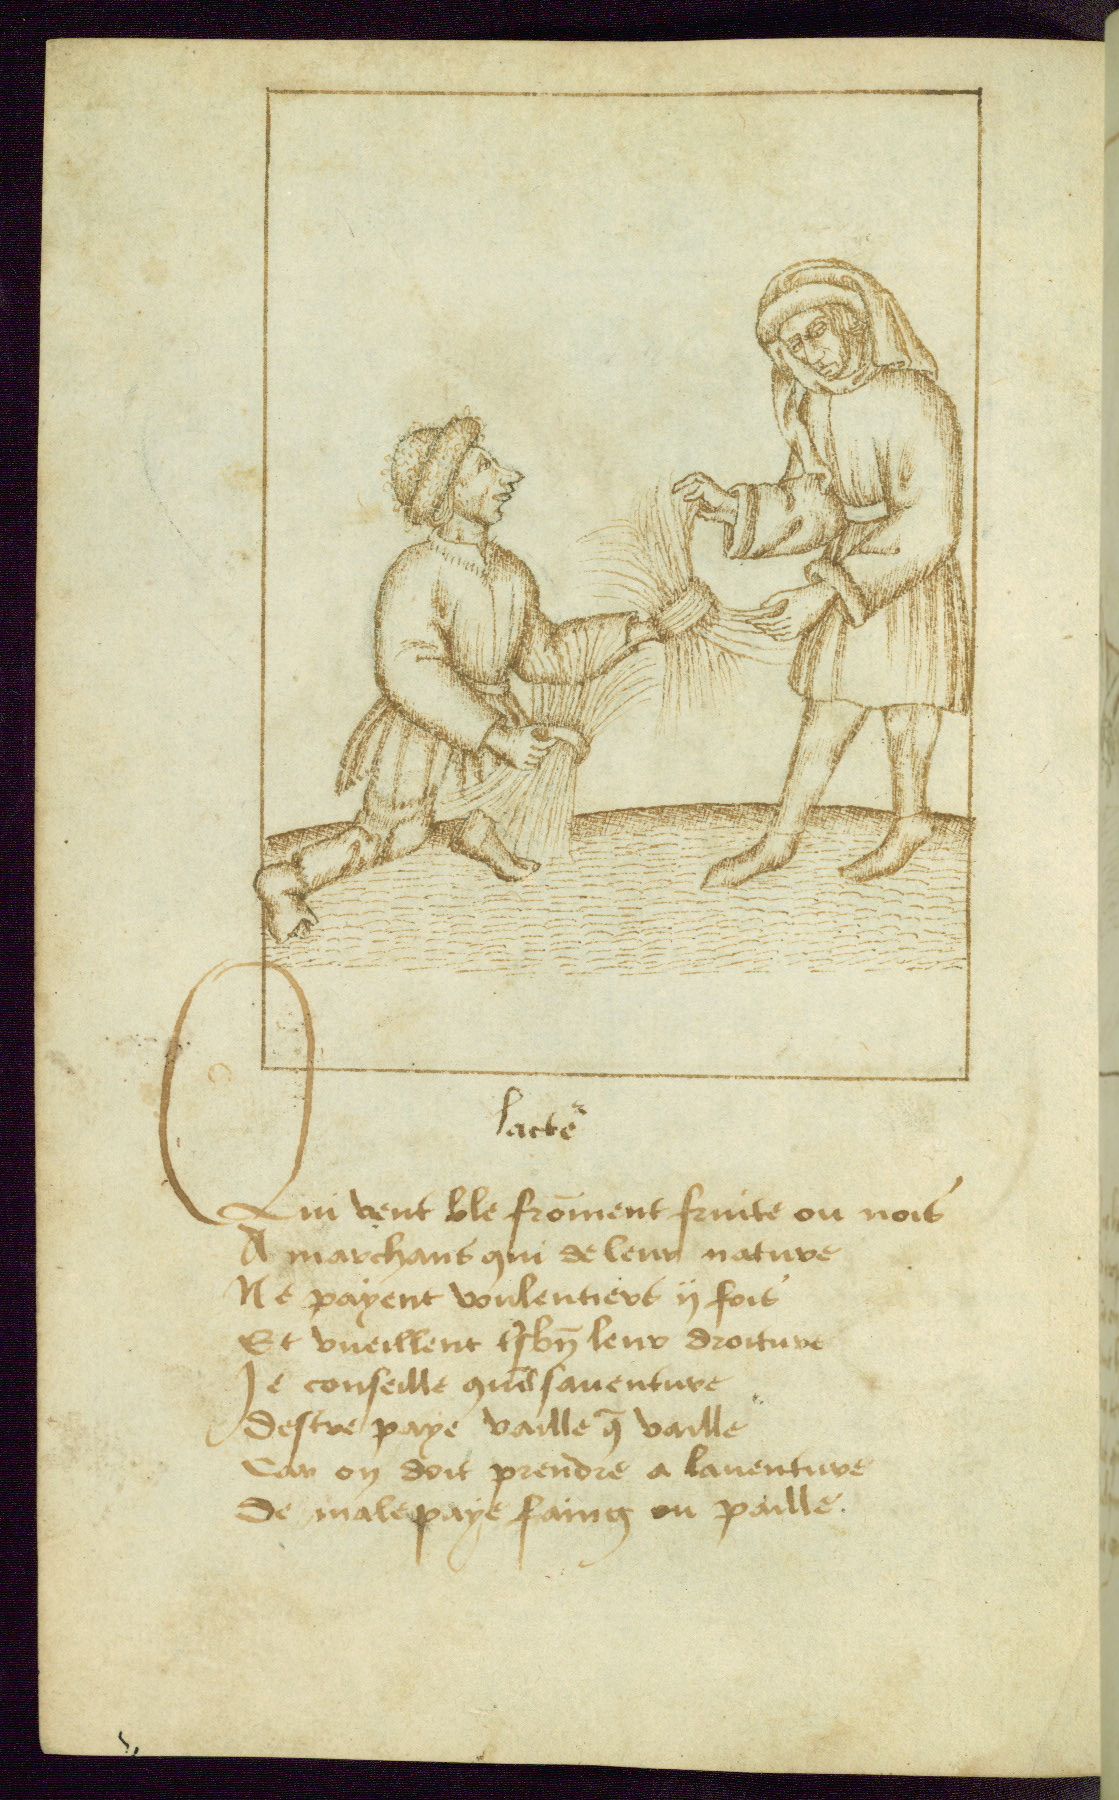 lacteur
Qui vent ble from̄ent fruite ou nois
A marchans qui de leur nature
Ne payent voulentiers ij fois
Et vueillent tsbn̄ leur droiture
Je conseille quil sauenture
Destre paye vaille q̄ vaille
Car on doit prendre a lauenture
De male paye faing ou paille.